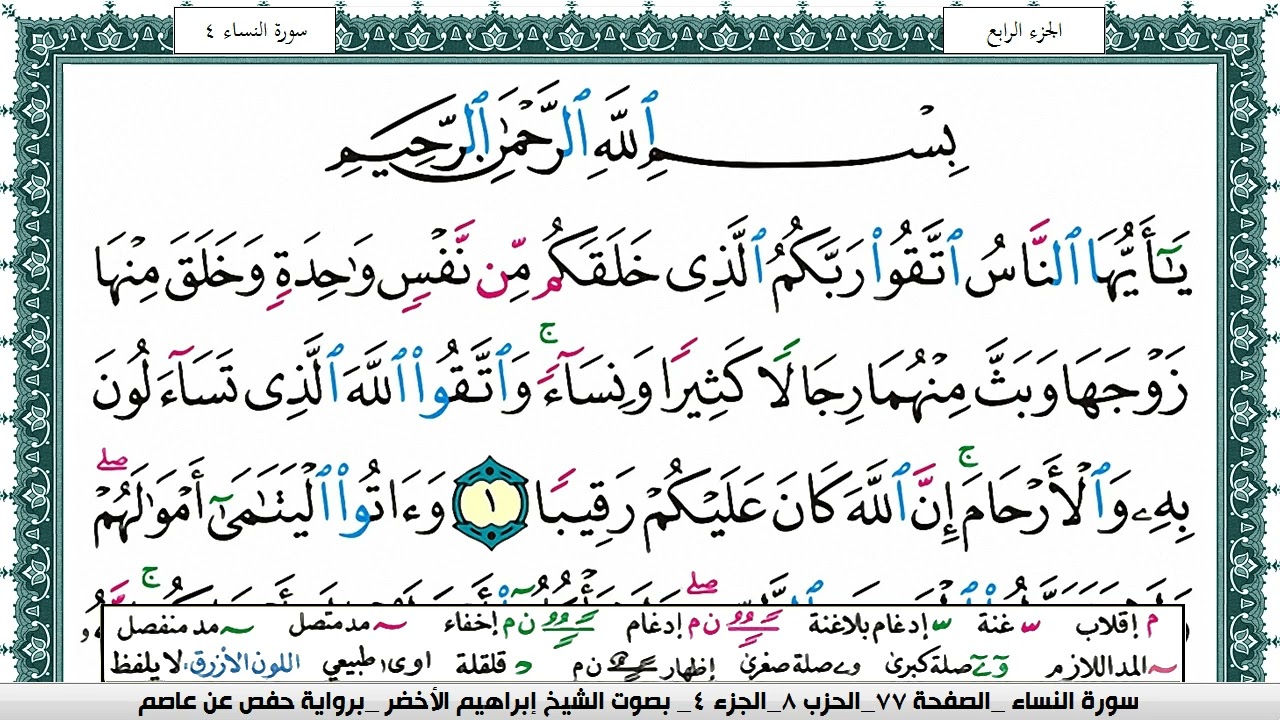 الجزء الرابع
سورة النساء ٤
بِسْمِ ٱللَّهِ ٱلرَّحْمَٰنِ ٱلرَّحِيمِ
يَٰٓأَيُّهَا ٱلنَّاسُ ٱتَّقُوا۟ رَبَّكُمُ ٱلَّذِى خَلَقَكُم مِّن نَّفْسٍ وَٰحِدَةٍ وَخَلَقَ مِنْهَا
زَوْجَهَا وَبَثَّ مِنْهُمَا رِجَالًا كَثِيرًا وَنِسَآءً ۚ وَٱتَّقُوا۟ ٱللَّهَ ٱلَّذِى تَسَآءَلُونَ
بِهِۦ وَٱلْأَرْحَامَ ۚ إِنَّ ٱللَّهَ كَانَ عَلَيْكُمْ رَقِيبًا ١ وَءَاتُوا۟ ٱلْيَتَٰمَىٰٓ أَمْوَٰلَهُمْ ۖ
م إقلاب غنة إدغام بلاغنة ن م إدغام ن م إخفاء مد متصل مد منفصل
المد اللازم صلة كبرى صلة صغرى إظهار ن م قلقلة اوى طبيعي اللون الأزرق: لا يلفظ
سورة النساء _الصفحة ٧٧_الحزب ٨_الجزء ٤_ بصوت الشيخ إبراهيم الأخضر _برواية حفص عن عاصم